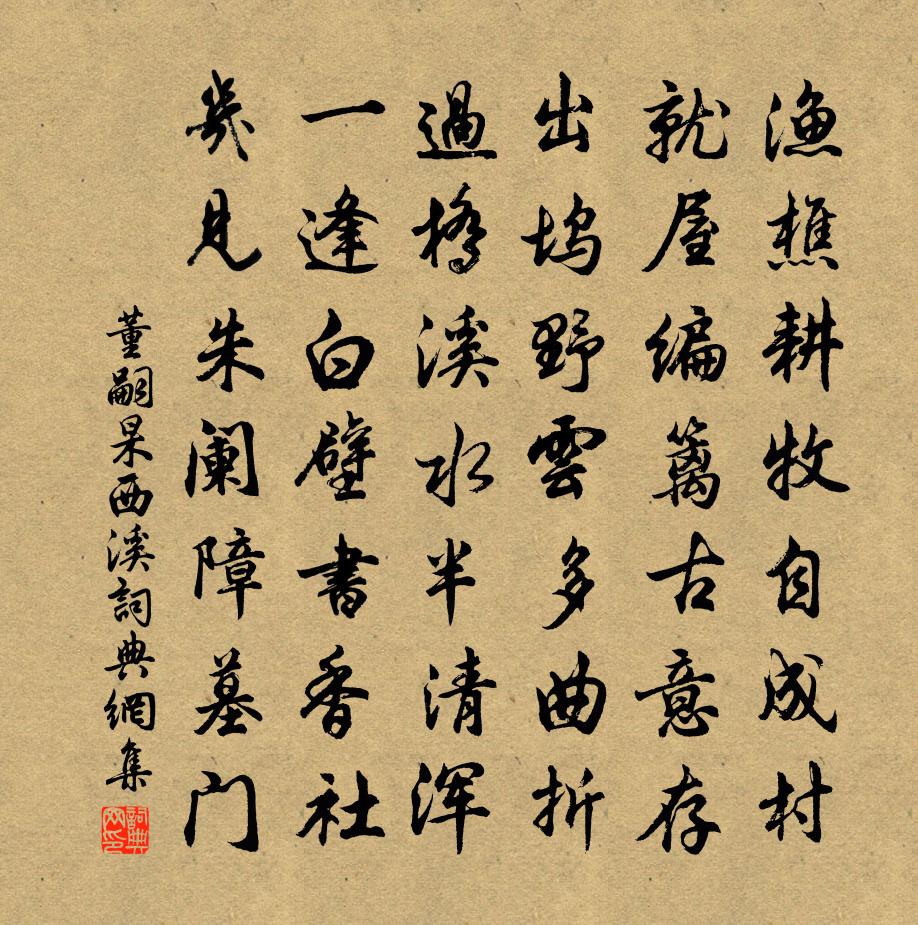 渔樵耕牧自成村
就屋编篱古意存
出坞野雲多曲折
過橋溪水半清浑
一逢白壁書香社
幾見朱阑障墓门
董嗣杲西溪詞典網集
詞典网印